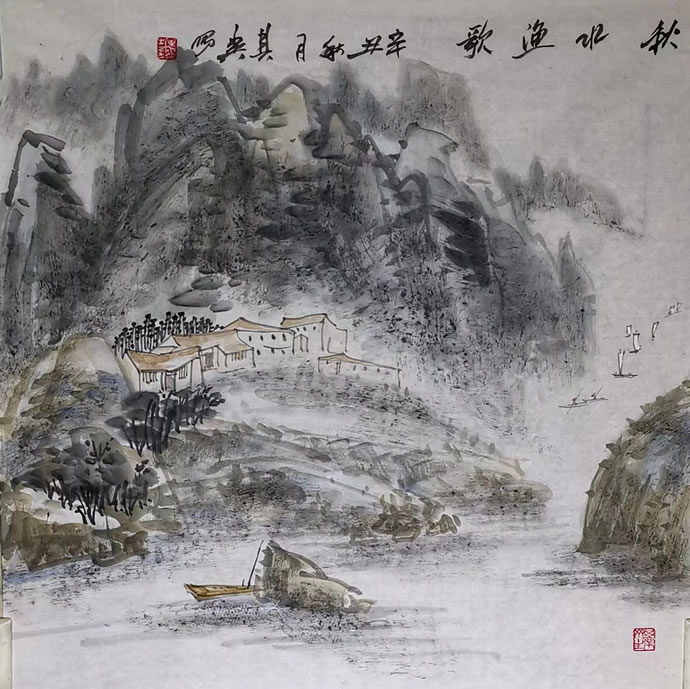 秋水渔歌 辛丑秋月其英写